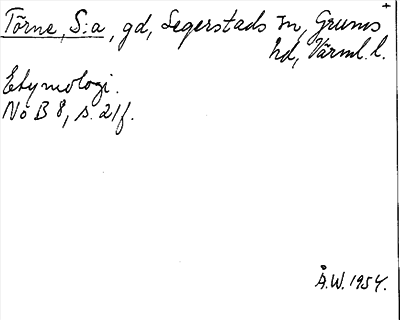 Törne, S:a, gd, Segerstads sn, Grums
hd, Värml. l.
Etymologi.
NoB 8, s. 21f.
Å.W. 1954.